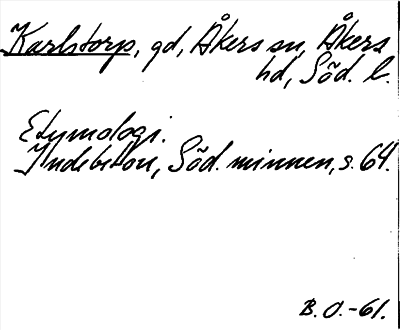 Karlstorp, gd, Åkers sn, Åkers
hd, Söd. l.
Etymologi.
Indebetou, Söd. minnen, s. 64.
B. O. -61.